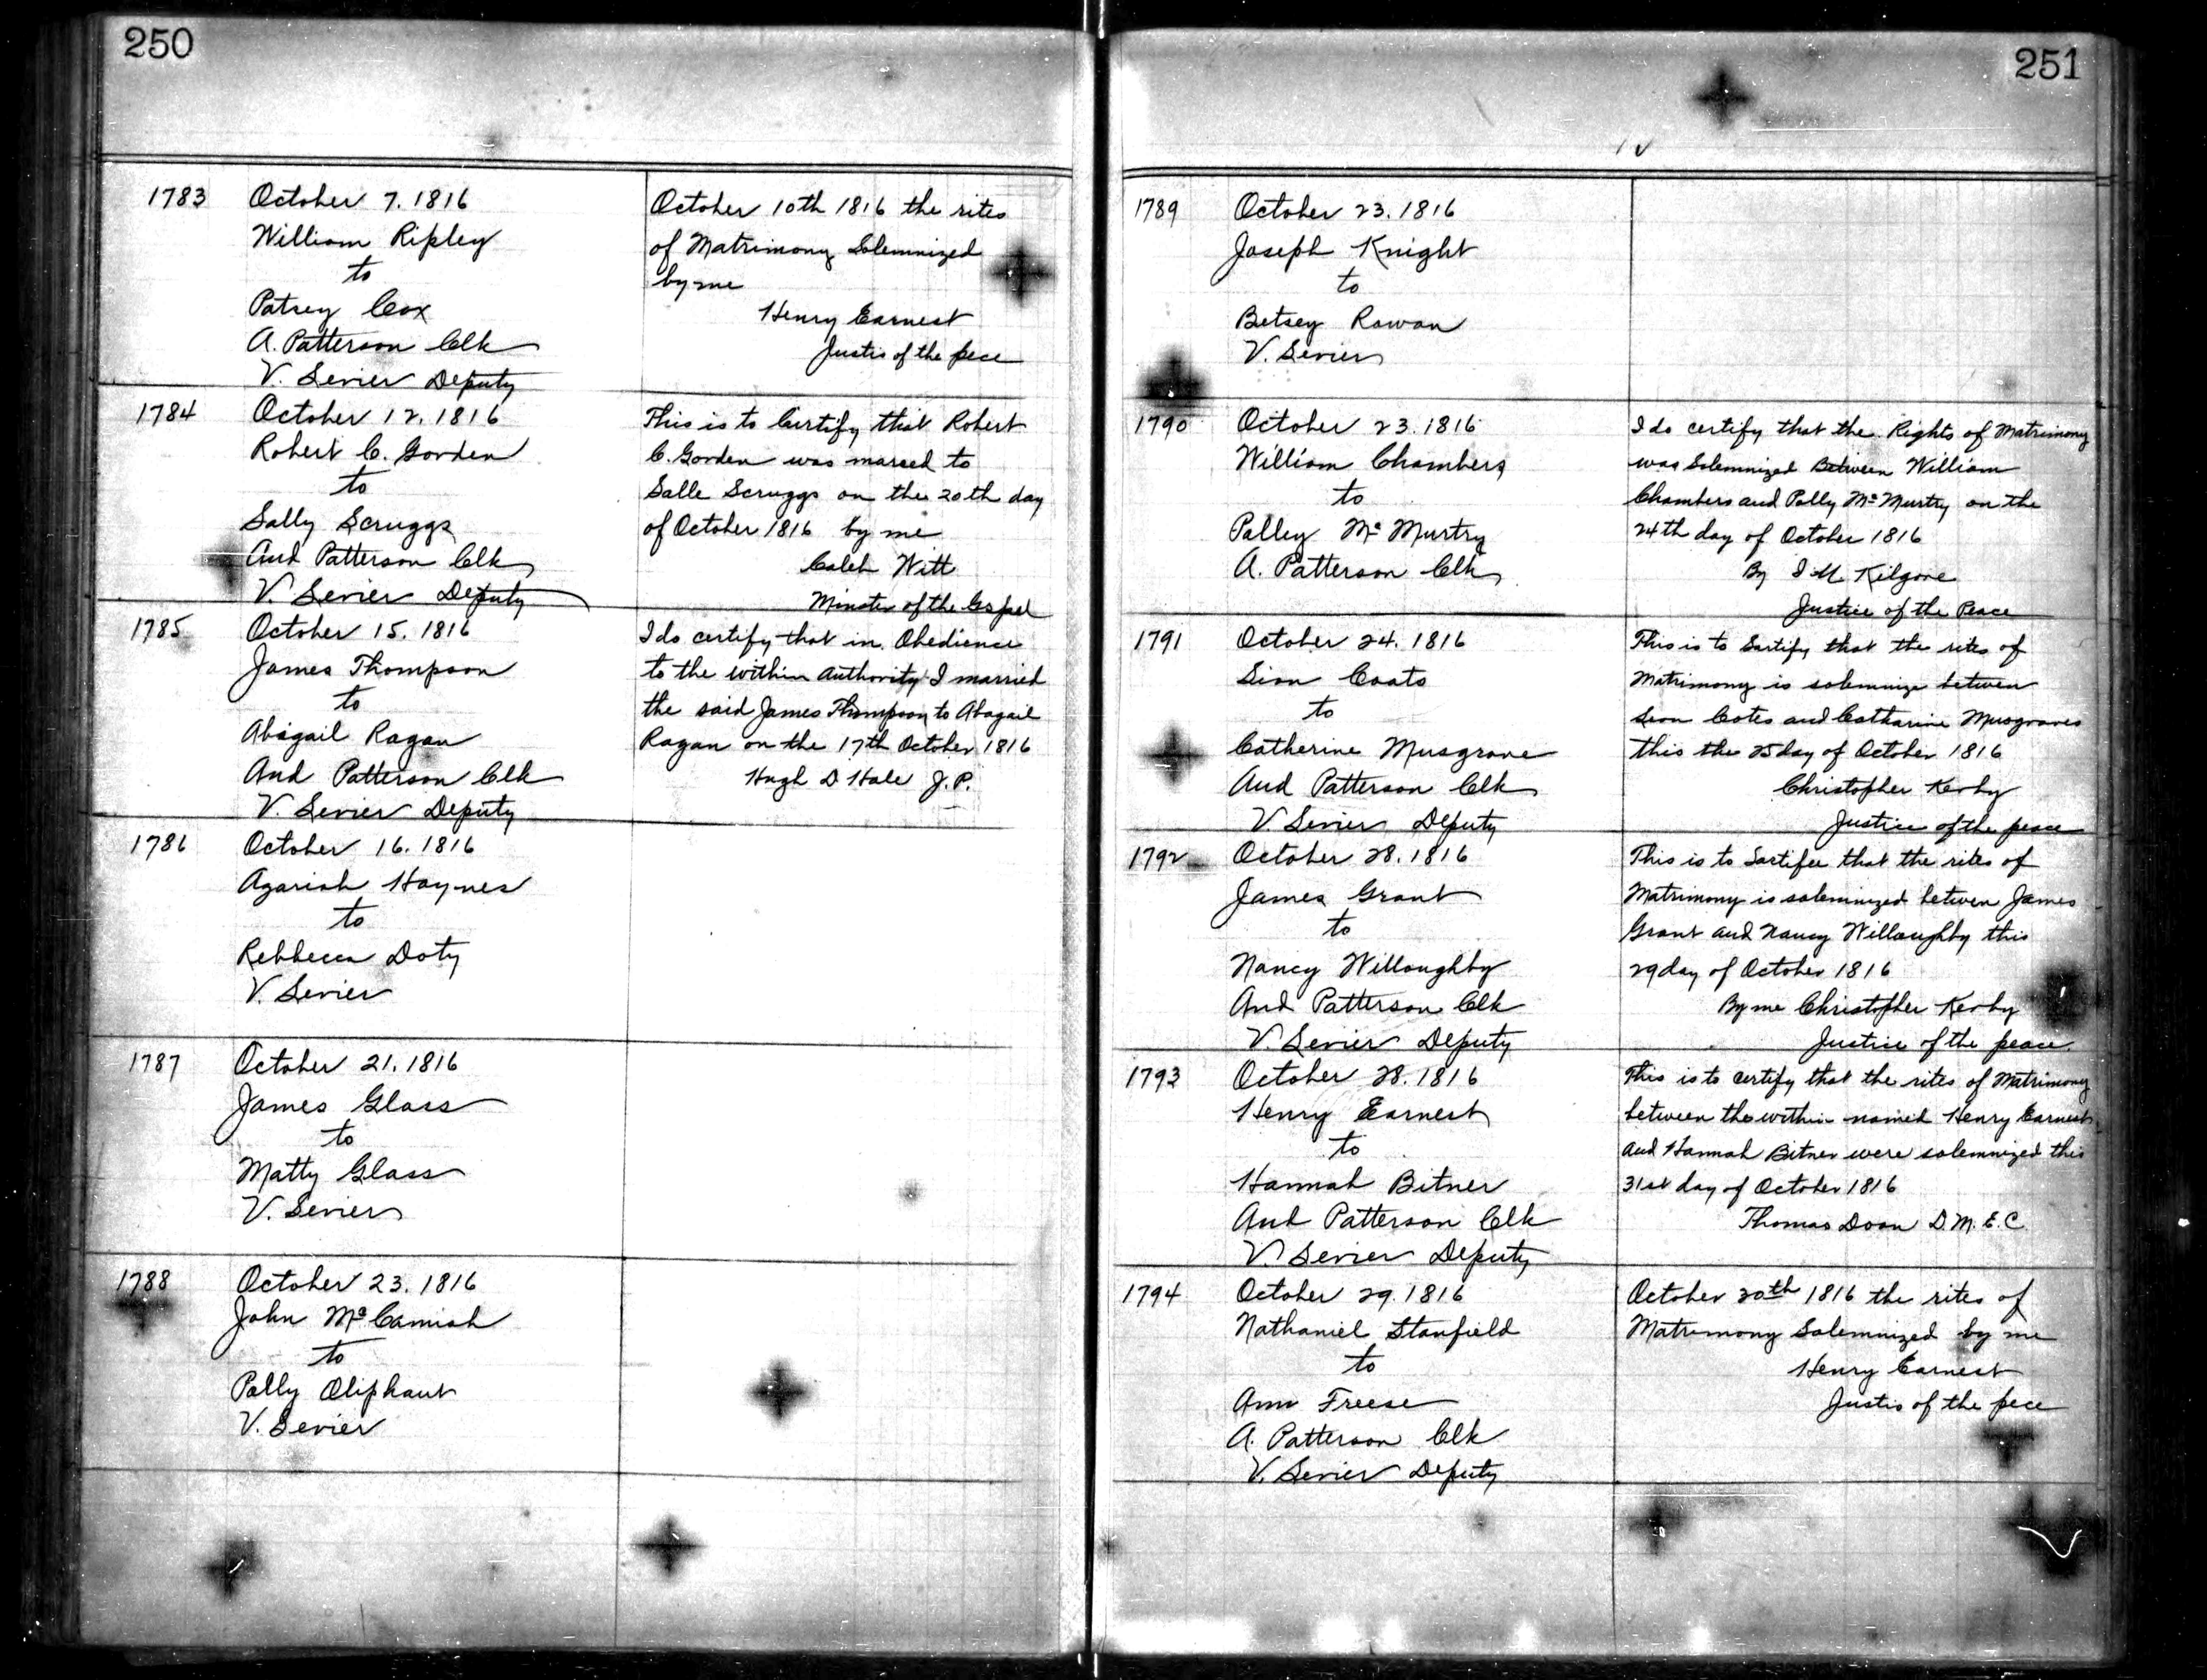 250
1783
October 7. 1816
William Ripley
to
Patsey Cox
A. Patterson Clk
V. Sevier Deputy
October 10th 1816 the rites
of Matrimony Solemnized
by me
Henry Earnest
Justis of the pece
1784
October 12. 1816
Robert C. Gorden
to
Sally Scruggs
And Patterson Clk
V. Sevier Deputy
This is to Certify that Robert
C. Gorden was mareed to
Salle Scruggs on the 20th day
of October 1816 by me
Caleb Witt
Minster of the Gospel
1785
October 15. 1816
James Thompson
to
Abigail Ragan
And Patterson Clk
V. Sevier Deputy
I do certify that in Obedience
to the within Authority I married
the said James Thompson to Abagail
Ragan on the 17th October 1816
Hugh D Hale J.P.
1786
October 16. 1816
Azariah Haynes
to
Rebbecca Doty
V. Sevier
1787
October 21. 1816
James Glass
to
Matty Glass
V. Sevier
1788
October 23. 1816
John Mc Camish
to
Polly Oliphant
V. Sevier
251
1789
October 23. 1816
Joseph Knight
to
Betsey Rowan
V. Sevier
1790
October 23. 1816
William Chambers
to
Polley Mc Murtry
A. Patterson Clk
I do certify that the Rights of Matrimony
was Solemnized Between William
Chambers and Polly Mc Murtry on the
24th day of October 1816
By J M Kilgore
Justice of the Peace
1791
October 24. 1816
Sion Coats
to
Catherine Musgrove
And Patterson Clk
V. Sevier Deputy
This is to Sartify that the rites of
Matrimony is solemnize betwen
Sion Cotes and Catharine Musgroves
this the 25 day of October 1816
Christopher Kerby
Justice of the peace
1792
October 28. 1816
James Grant
to
Nancy Willoughby
And Patterson Clk
V. Sevier Deputy
This is to Sartifee that the rites of
Matrimony is solemnized betwen James
Grant and Nancy Willoughby this
29 day of October 1816
By me Christopher Kerby
Justice of the peace.
1793
October 28. 1816
Henry Earnest
to
Hannah Bitner
And Patterson Clk
V. Sevier Deputy
This is to certify that the rites of Matrimony
between the within named Henry Earnest
and Hannah Bitner were solemnized this
31st day of October 1816
Thomas Doan D.M.E.C.
1794
October 29. 1816
Nathaniel Stanfield
to
Ann Freese
A. Patterson Clk
V. Sevier Deputy
October 30th 1816 the rites of
Matrimony Solemnized by me
Henry Earnest
Justis of the pece